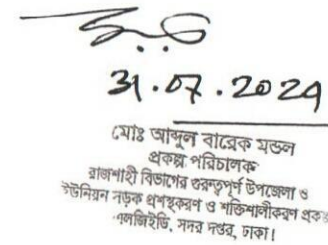 31.07.2024
মোঃ আব্দুল বারেক মন্ডল
প্রকল্প পরিচালক
রাজশাহী বিভাগের গুরুত্বপূর্ণ উপজেলা ও
ইউনিয়ন সড়ক প্রশস্তকরণ ও শক্তিশালীকরণ প্রকল্প
এলজিইডি, সদর দপ্তর, ঢাকা।